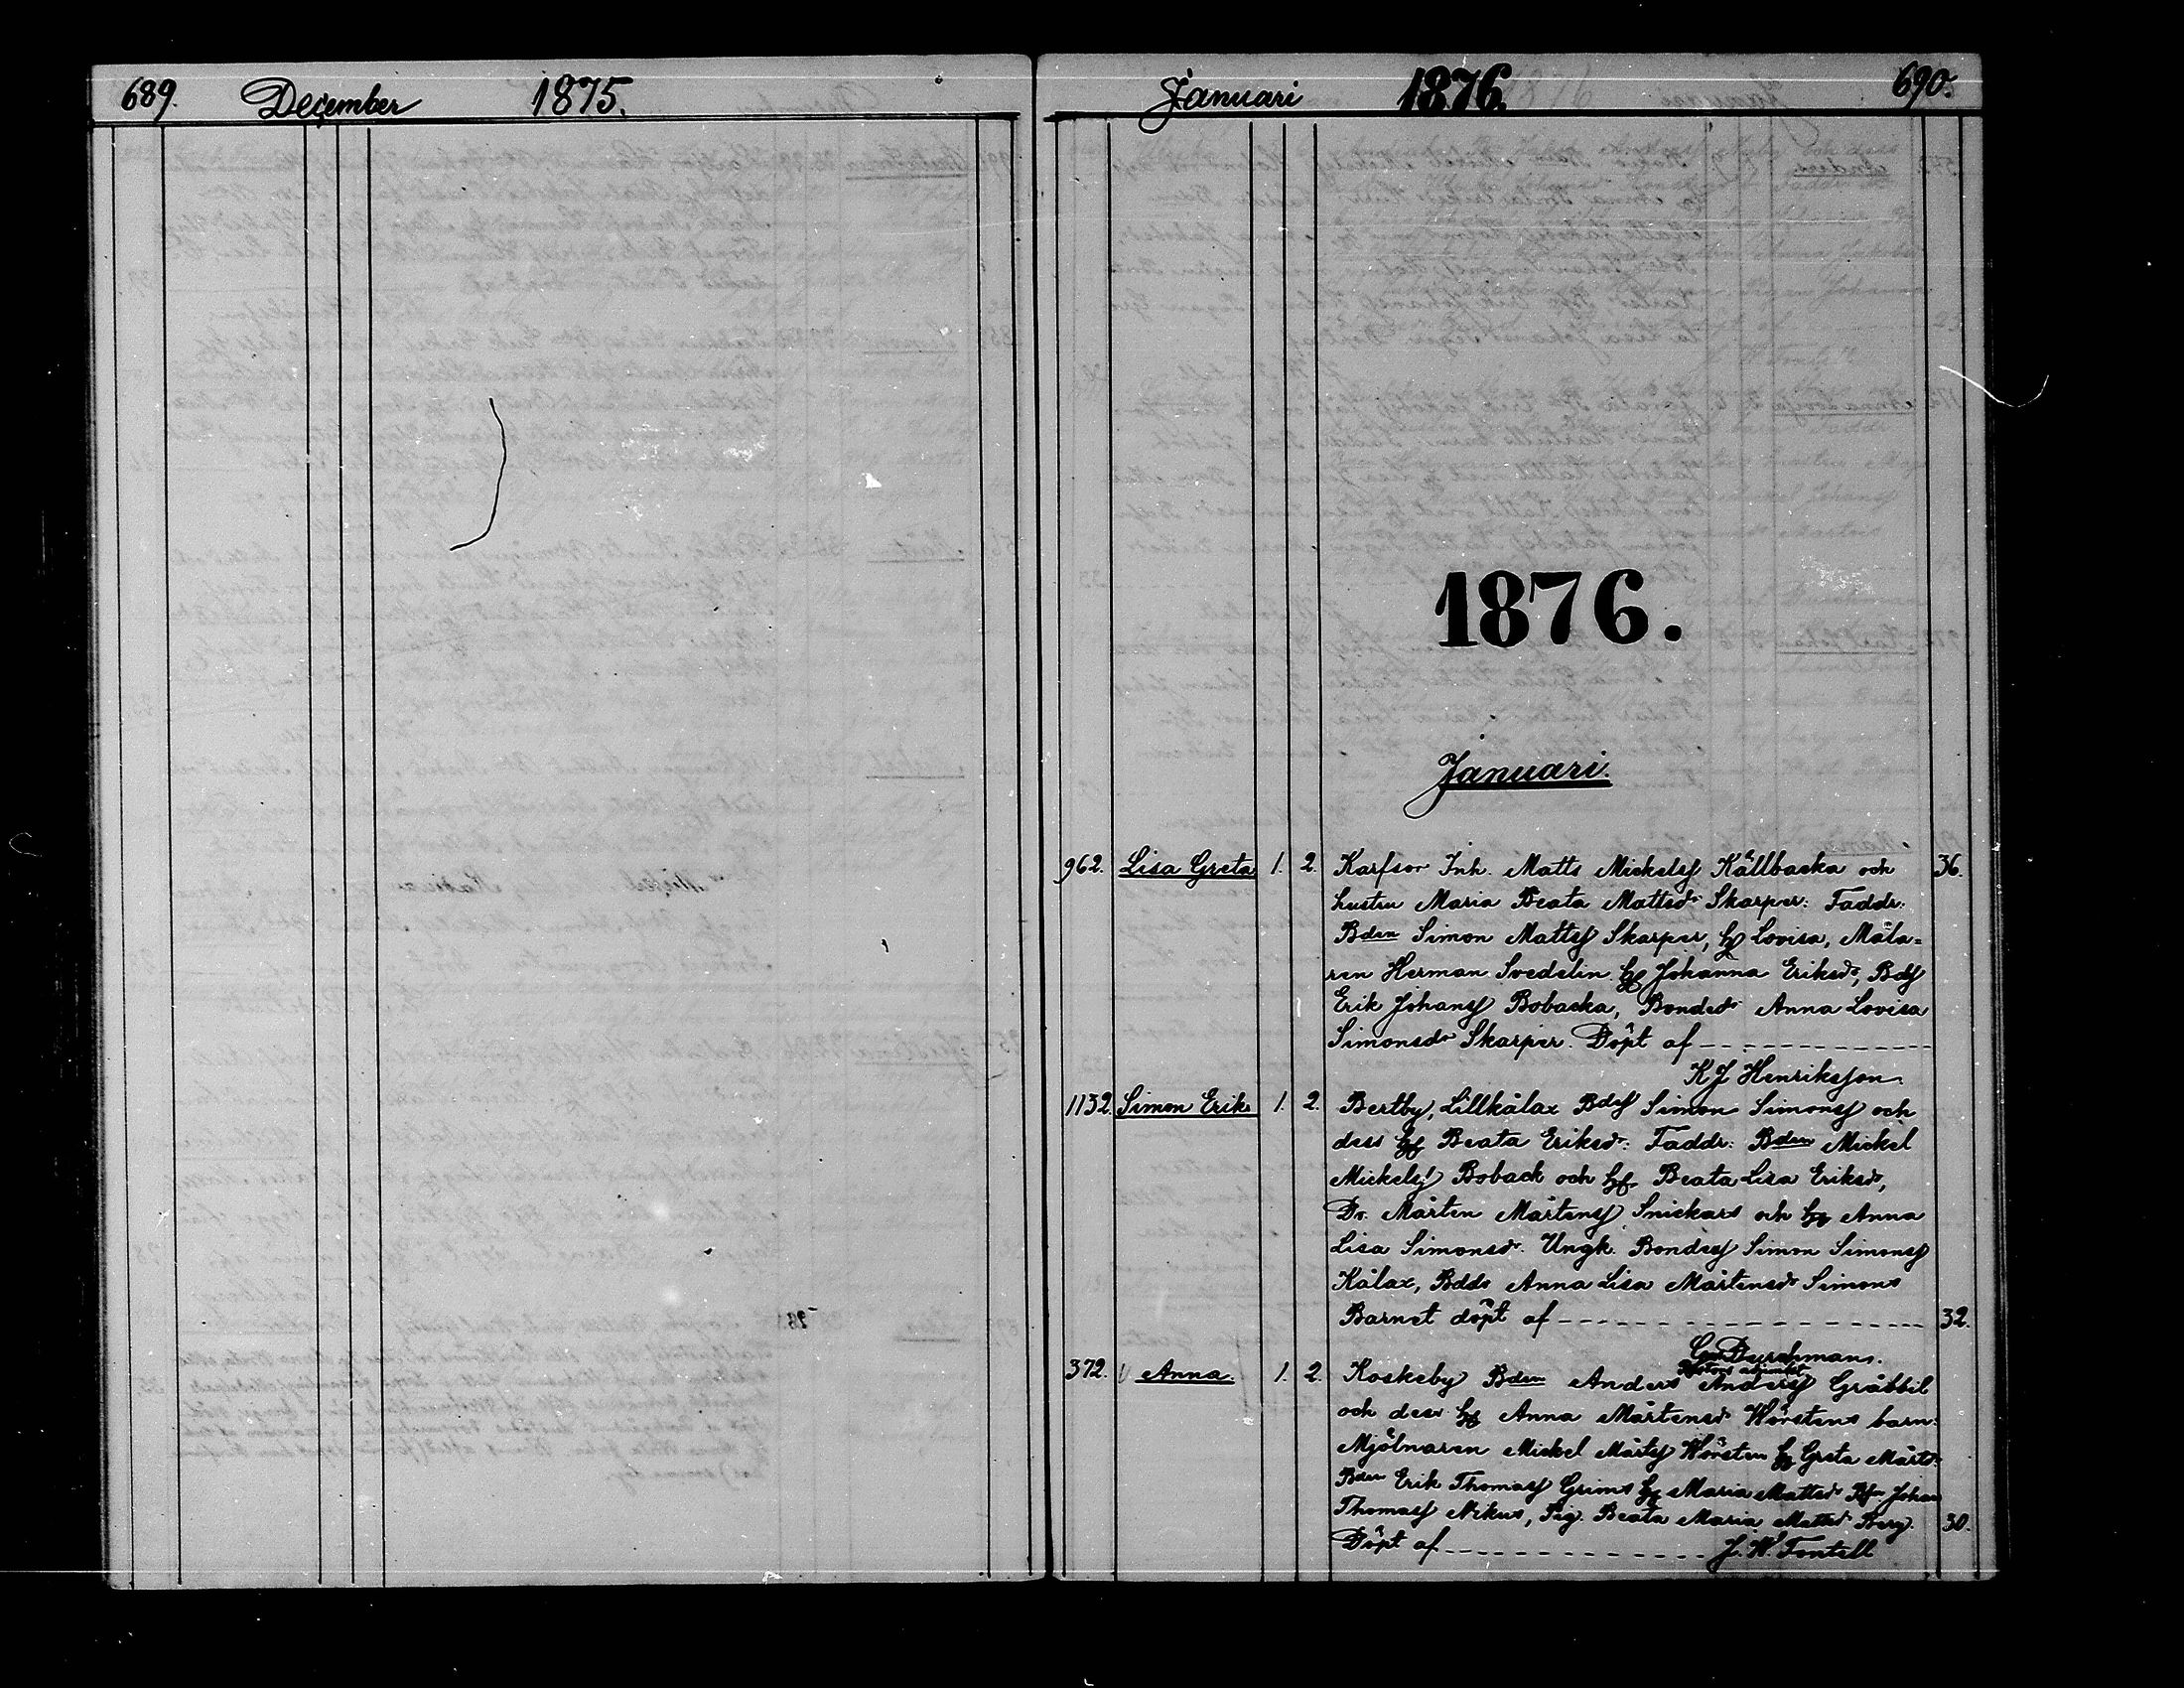 689. December 1875.
Januari 1876. 690.
1876.
Januari.
962. Lisa Greta 1. 2. Karfsor Inh. Matts Mickelsſ Källbacka och 36.
hustru Maria Beata Mattsdr Skarper: Faddr:
Bden Simon Mattsſ Skarper, h Lovisa, Måla=
ren Herman Svedelin hu Johanna Eriksdr, Bdsſ
Erik Johansſ Bobacka, Bondedr Anna Lovisa
Simonsdr Skarper. Döpt af
K J Henriksson.
1132. Simon Erik 1. 2. Bertby, Lillkålax Bdsſ Simon Simonsſ och
dess hu Beata Eriksdr. Faddr: Bden Mickel
Mickelsſ Boback och hu Beata Lisa Eriksdr,
Do. Mårten Mårtensſ Snickars och hu Anna
Lisa Simonsdr. Ungk. Bondesſ Simon Simonsſ
Kålax, Bddr Anna Lisa Mårtensdr Simons
Barnet döpt af 32.
Durchman.
Pastors adjunkt
372. Anna. 1. 2. Koskeby Bden Anders Andersſ Gräbbil
och dess hu Anna Mårtensdr Wörstens barn:
Mjölnaren Mickel Mårtsſ Wörsten hu Greta Mårtsd:
Bden Erik Thomasſ Grims hu Maria Mattsdr Johan
Thomasſ Nikus, Pig. Beata Maria Mattsd Berg. 30.
Döpt af J. W. Fontell